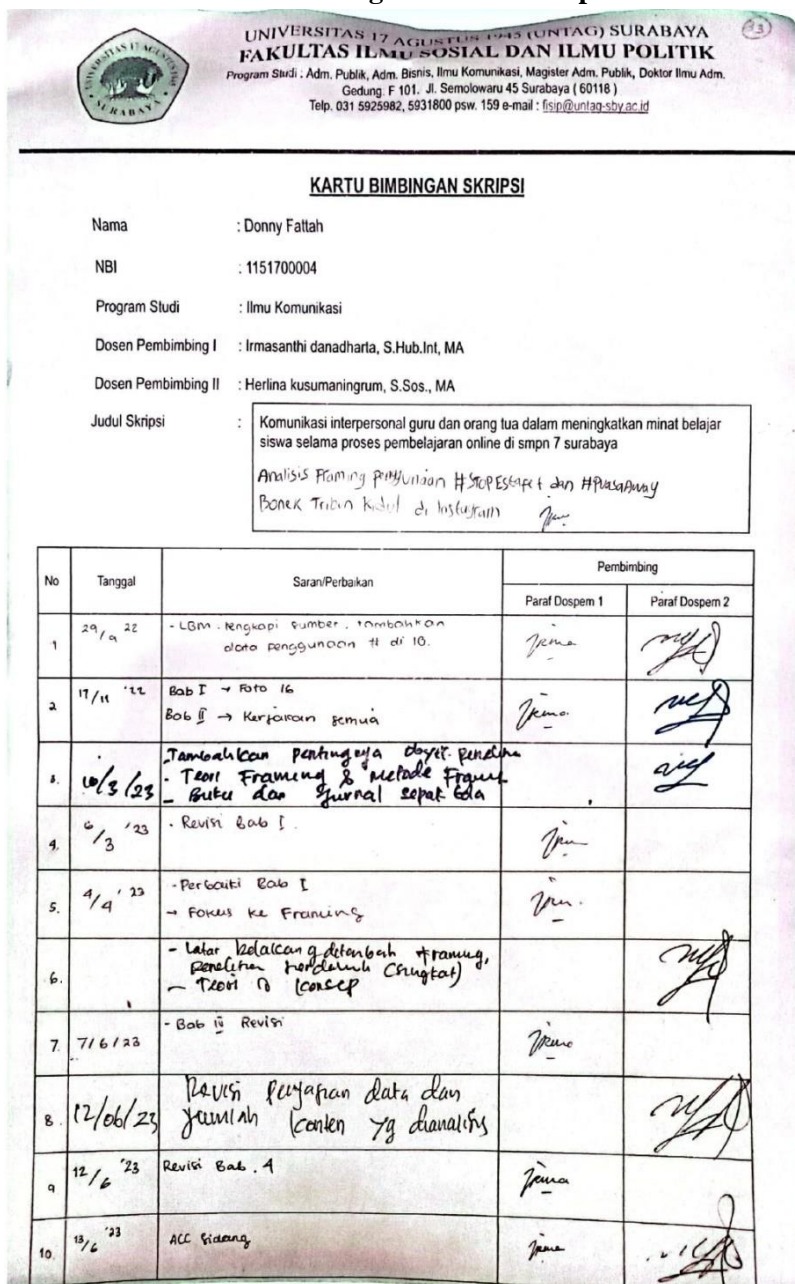 UNIVERSITAS 17 AGUSTUS 1945 (UNTAG) SURABAYA
FAKULTAS ILMU SOSIAL DAN ILMU POLITIK
Program Studi : Adm. Publik, Adm. Bisnis, Ilmu Komunikasi, Magister Adm. Publik, Doktor Ilmu Adm.
Gedung. F 101. Jl. Semolowaru 45 Surabaya ( 60118 )
Telp. 031 5925982, 5931800 psw. 159 e-mail : fisip@untag-sby.ac.id
KARTU BIMBINGAN SKRIPSI
Nama : Donny Fattah
NBI : 1151700004
Program Studi : Ilmu Komunikasi
Dosen Pembimbing I : Irmasanthi danadharta, S.Hub.Int, MA
Dosen Pembimbing II : Herlina kusumaningrum, S.Sos., MA
Judul Skripsi : Komunikasi interpersonal guru dan orang tua dalam meningkatkan minat belajar
siswa selama proses pembelajaran online di smpn 7 surabaya
Analisis Framing #STOPEstafet dan #PuasaAway
Bonek Tribun Kidul di Instagram
No Tanggal Saran/Perbaikan Pembimbing
Paraf Dospem 1 Paraf Dospem 2
1 29/9 22 - LBM. lengkapi sumber. tambahkan
data penggunaan # di IG.
2 17/11 '22 Bab I → Foto IG
Bab II → Kerjakan semua
3. 10/3/23 - Tambahkan
- Teori Framing & metode
- Buku dan Jurnal sepak bola
4. 6/3 '23 - Revisi Bab I.
5. 4/4 '23 - Perbaiki Bab I
→ Fokus ke Framing
6. - Latar belakang ditambah framing,
penelitian terdahulu (singkat)
- Teori & konsep
7. 7/6/23 - Bab Revisi
8. 12/06/23 Revisi penyajian data dan
jumlah konten yg dianalisis
9 12/6 '23 Revisi Bab. 4
10. 13/6 '23 ACC Sidang